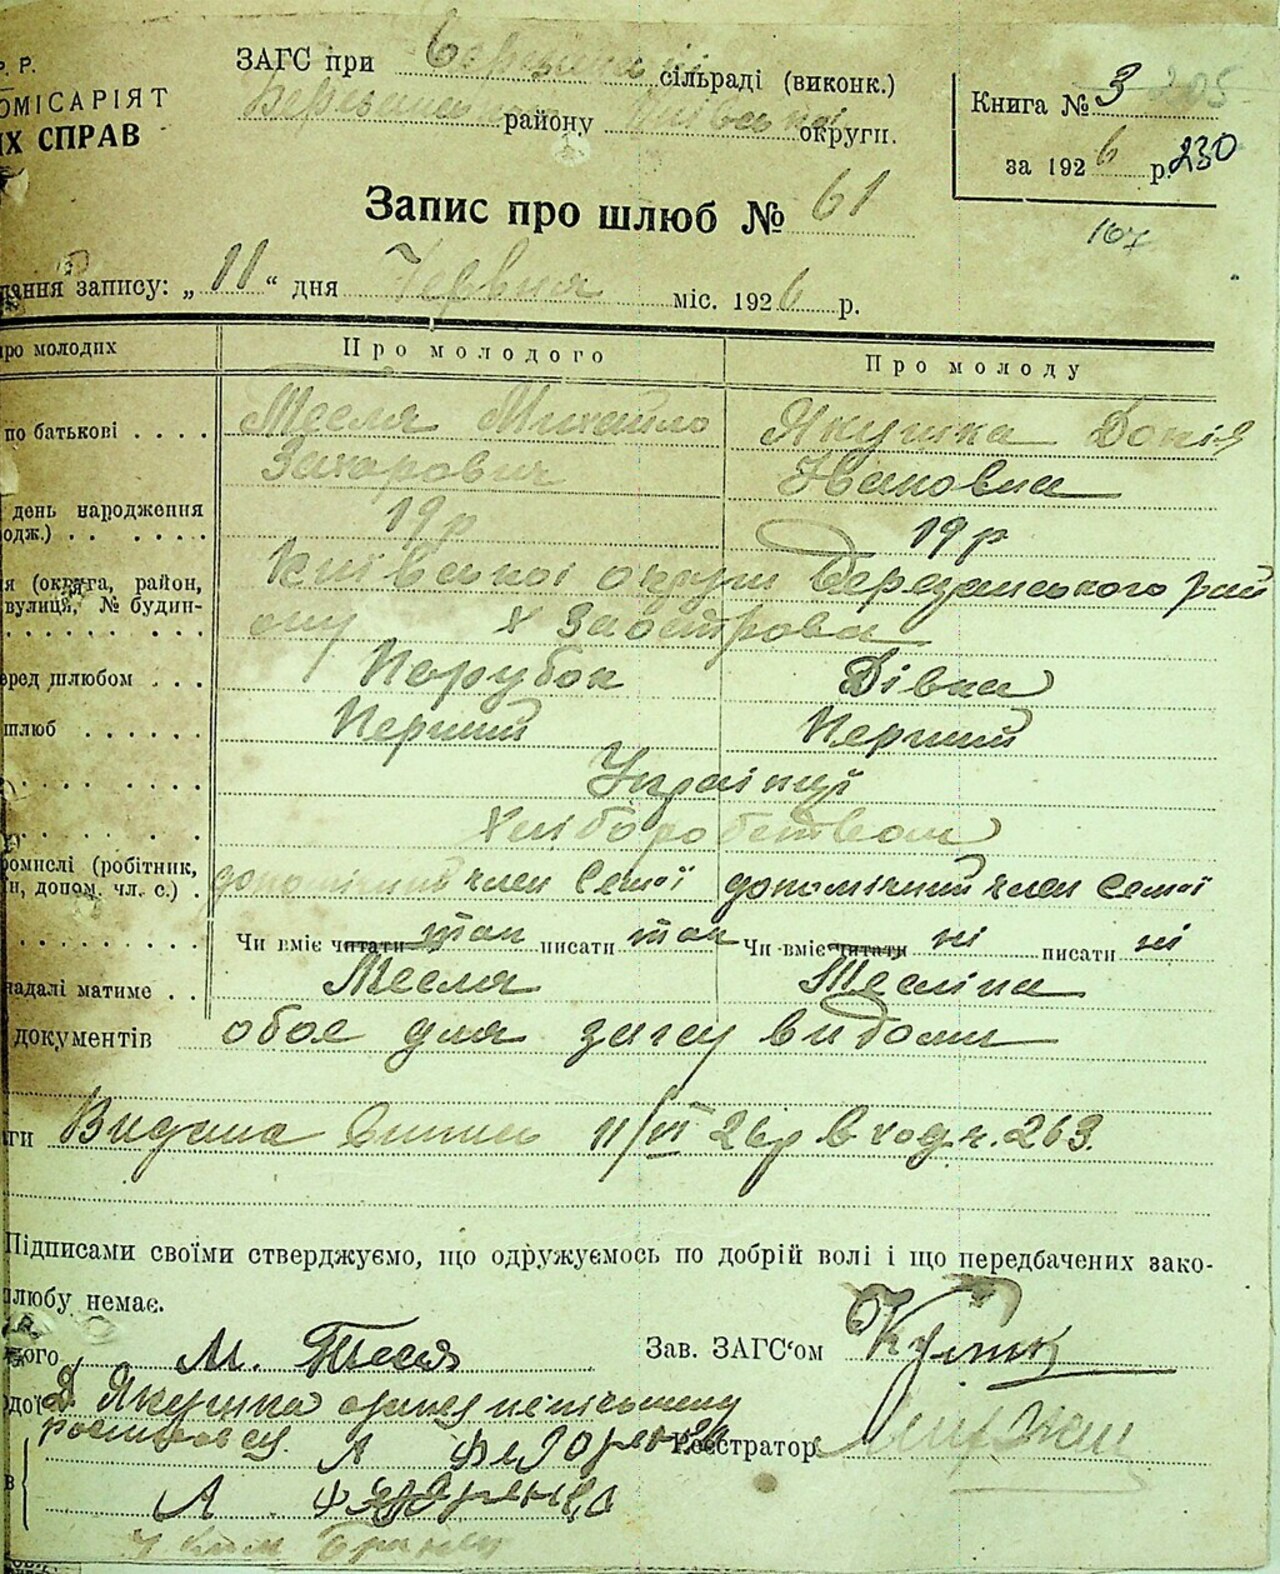 Р. Р.
ОМІСАРІЯТ
ИХ СПРАВ
ЗАГС при Березанській сільраді (виконк.)
Березанського району Київської округи.
Книга № 3 205
за 1926 р. 230
167
Запис про шлюб № 61
дання запису: „11“ дня Червня міс. 1926 р.
про молодих Про молодого Про молоду
по батькові Тесля Михайло Якушка Докія
Захарович Іваковна
день народження
одж.) 19 р 19 р
я (округа, район, Київської округи Березанського рай
вулиця, № будин-
ону х Заострова
еред шлюбом Парубок Дівка
шлюб Перший Перший
Українці
Хліборобством
ромислі (робітник,
н, допом. чл. с.) допомічний член семьї допомічний член семьї
Чи вміє читати так писати так Чи вміє читати ні писати ні
надалі матиме Тесля Тесліна
документів обоє для загсу видоми
ги Видана випис 11/VI 26р вход ч. 263.
Підписами своїми стверджуємо, що одружуємось по добрій волі і що передбачених зако-
шлюбу немає.
ого М. Тесля Зав. ЗАГС'ом
дої Д Якушка
росписався А Федоренко Реєстратор
в
А Федоренко